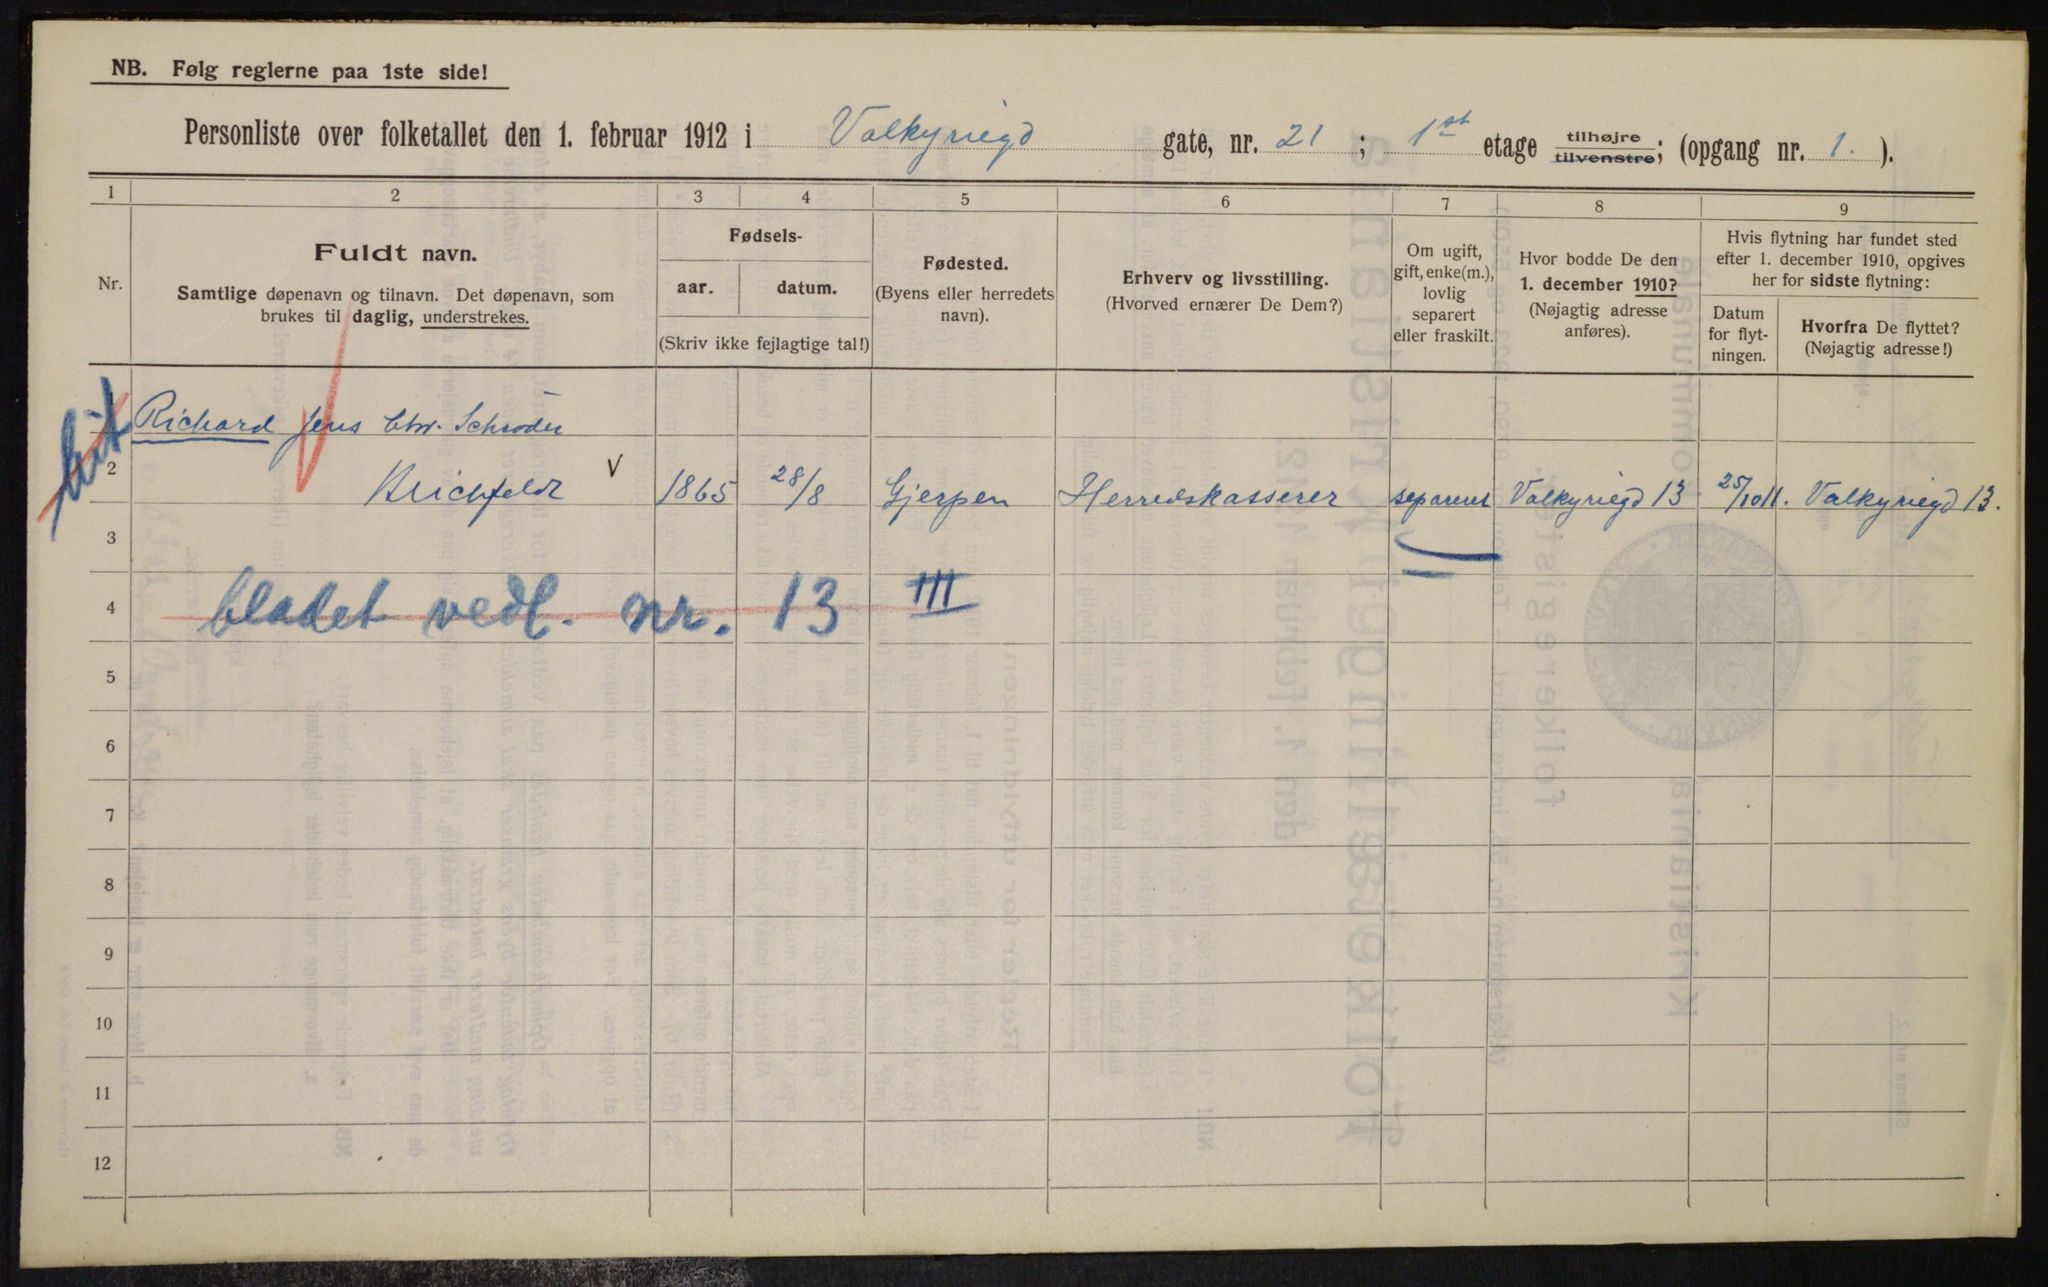 NB. Følg reglerne paa 1ste side!
Personliste over folketallet den 1. februar 1912 i Valkyriegd gate, nr. 21 ; 1st etage tilhøjre tilvenstre; (opgang nr. 1. ).
1 2 3 4 5 6 7 8 9
Nr.
Fuldt navn.
Samtlige døpenavn og tilnavn. Det døpenavn, som
brukes til daglig, understrekes.
Fødsels-
aar. datum.
(Skriv ikke fejlagtige tal!)
Fødested.
(Byens eller herredets
navn).
Erhverv og livsstilling.
(Hvorved ernærer De Dem?)
Om ugift,
gift, enke(m.),
lovlig
separert
eller fraskilt.
Hvor bodde De den
1. december 1910?
(Nøjagtig adresse
anføres).
Hvis flytning har fundet sted
efter 1. december 1910, opgives
her for sidste flytning:
Datum
for flyt-
ningen.
Hvorfra De flyttet?
(Nøjagtig adresse!)
Richard Jens Chr. Schrøder
2 Brichfeldt V 1865 28/8 Gjerpen Herredskasserer separeret Valkyriegd 13 25/10 11. Valkyriegd 13.
3
4 bladet vedl. nr. 13 III
5
6
7
8
9
10
11
12